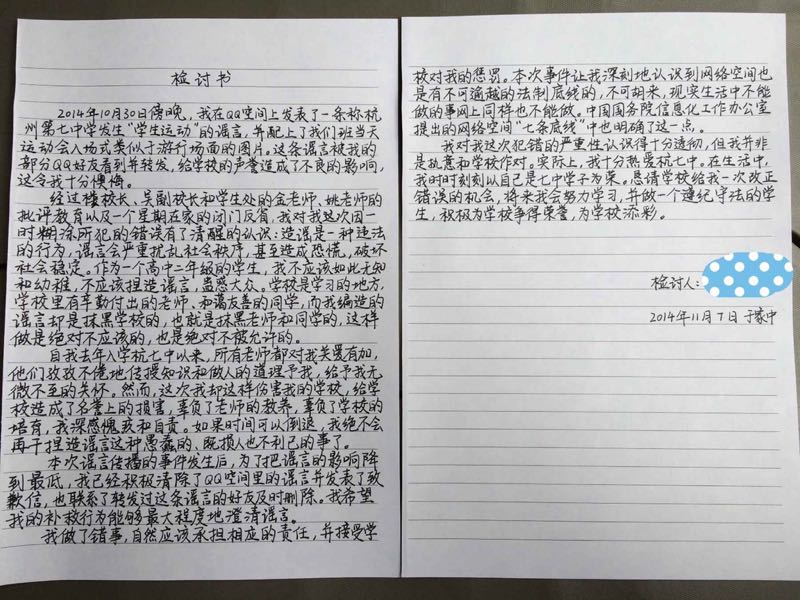 检讨书
2014年10月30日傍晚，我在QQ空间上发表了一条称杭
州第七中学发生“学生运动”的谣言，并配上了我们班当天
运动会入场式类似于游行场面的图片。这条谣言被我的
部分QQ好友看到并转发，给学校的声誉造成了不良的影响，
这令我十分懊悔。
经过楼校长、吴副校长和学生处的金老师、姚老师的
批评教育以及一个星期在家的闭门反省，我对我这次因一
时糊涂所犯的错误有了清醒的认识：造谣是一种违法
的行为，谣言会严重扰乱社会秩序，甚至造成恐慌，破坏
社会稳定。作为一个高中二年级的学生，我不应该如此无知
和幼稚，不应该捏造谣言，蛊惑大众。学校是学习的地方，
学校里有辛勤付出的老师、和蔼友善的同学，而我编造的
谣言却是抹黑学校的，也就是抹黑老师和同学的，这样
做是绝对不应该的，也是绝对不被允许的。
自我去年入学杭七中以来，所有老师都对我关爱有加，
他们孜孜不倦地传授知识和做人的道理予我，给予我无
微不至的关怀。然而，这次我却这样伤害我的学校，给学
校造成了名誉上的损害，辜负了老师的教养，辜负了学校的
培育，我深感愧疚和自责。如果时间可以倒退，我绝不会
再干捏造谣言这种愚蠢的、既损人也不利己的事了。
本次谣言传播的事件发生后，为了把谣言的影响降
到最低，我已经积极清除了QQ空间里的谣言并发表了致
歉信，也联系了转发过这条谣言的好友及时删除。我希望
我的补救行为能够最大程度地澄清谣言。
我做了错事，自然应该承担相应的责任，并接受学
校对我的惩罚。本次事件让我深刻地认识到网络空间也
是有不可逾越的法制底线的，不可胡来，现实生活中不能
做的事网上同样也不能做。中国国务院信息化工作办公室
提出的网络空间“七条底线”中也明确了这一点。
我对我这次犯错的严重性认识得十分透彻，但我并非
是执意和学校作对。实际上，我十分热爱杭七中。在生活中，
我时时刻刻以自己是七中学子为荣。恳请学校给我一次改正
错误的机会，将来我会努力学习，并做一个遵纪守法的学
生，积极为学校争得荣誉，为学校添彩。
检讨人：
2014年11月7日于家中